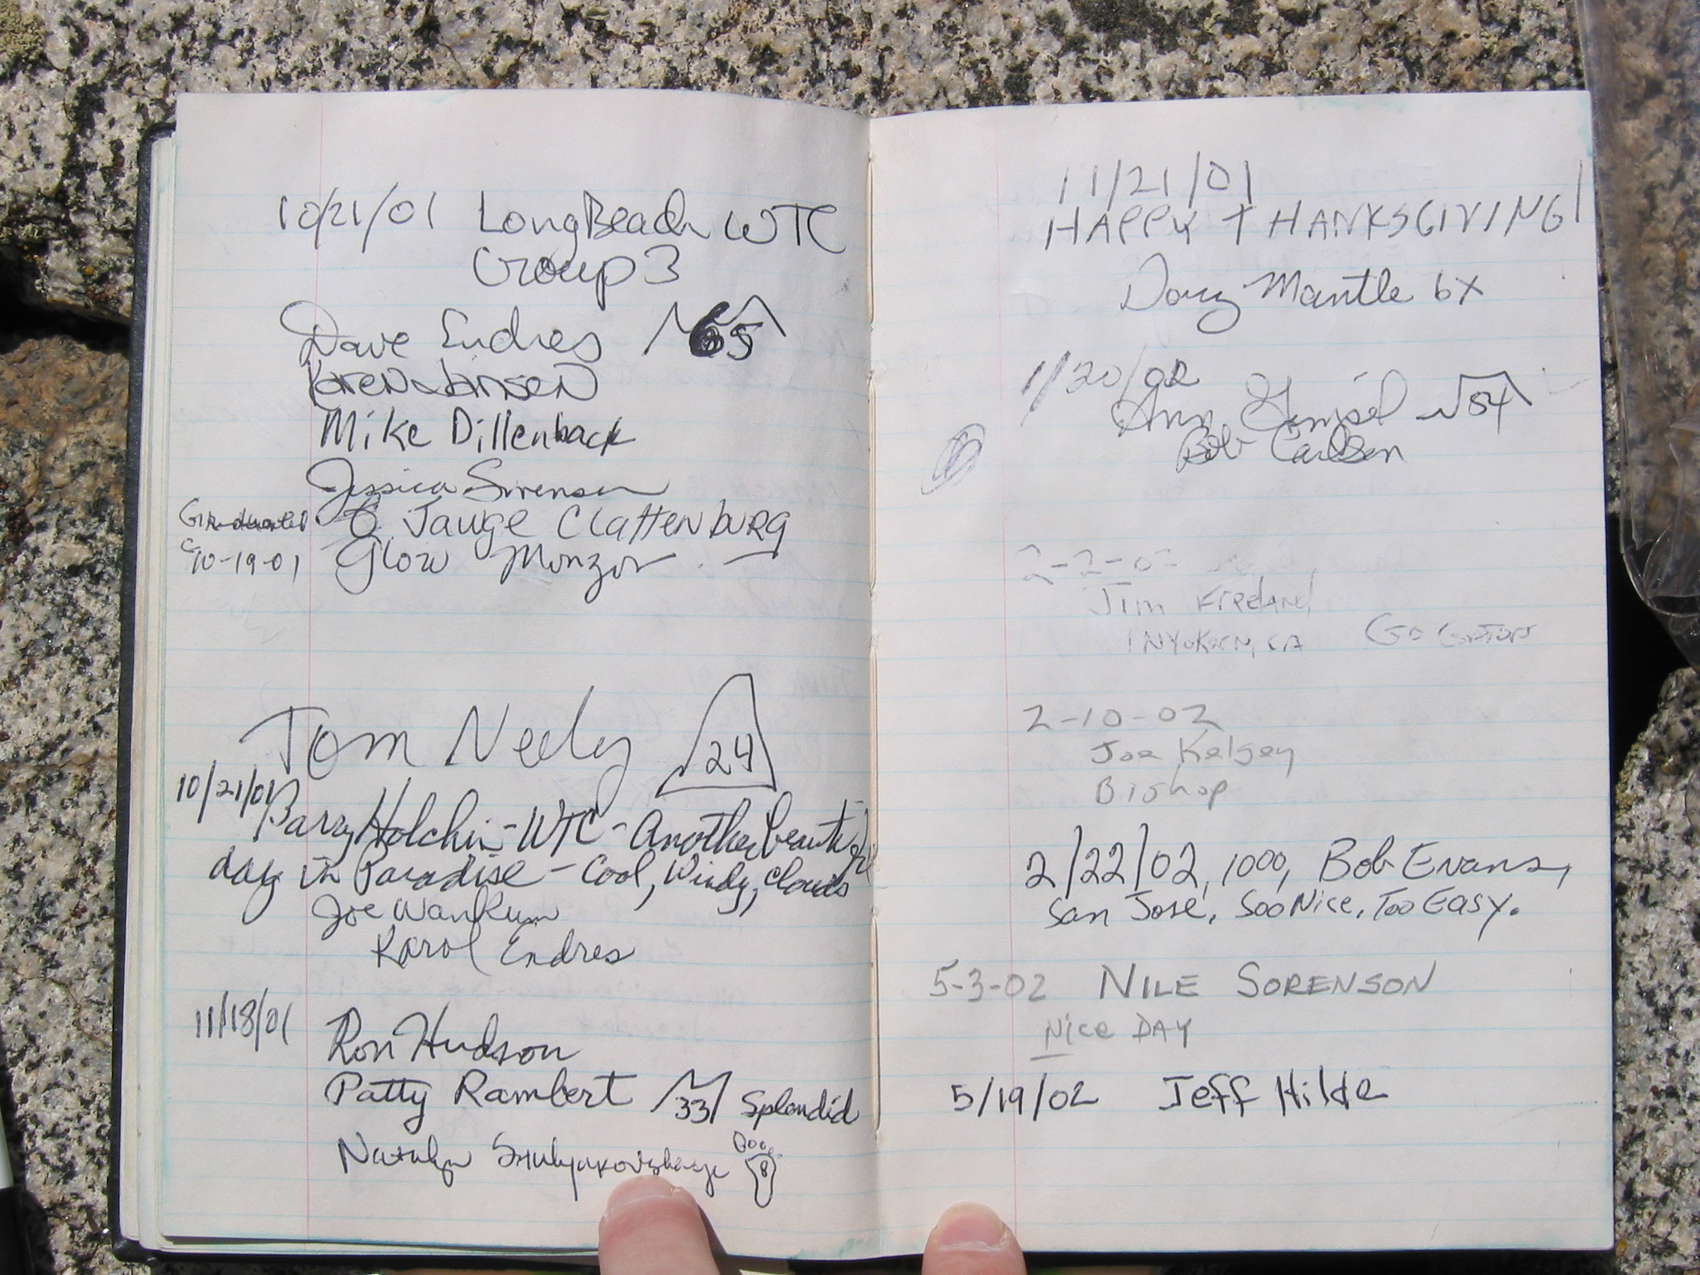 10/21/01 Long Beach WTC
Group 3
Dave Endres 65
Karen Jansen
Mike Dillenback
Jessica Sorensen
G. Jauge Clattenburg
10-19-01 Glow Monzon
Tom Neely 24
10/21/01
Barry Holchin - WTC - Another beautiful
day in Paradise - Cool, Windy, Clouds
Joe Wankum
Karol Endres
11/18/01
Ron Hudson
Patty Rambert 33 Splendid
8
11/21/01
HAPPY THANKSGIVING!
Doug Mantle 6x
1/20/02
Ann Gimpel 54
Bob Carlsen
2-2-02
Jim
INYOKERN, CA Go Gators
2-10-02
Joe Kelsey
Bishop
2/22/02, 1000, Bob Evans,
San Jose, Soo Nice, Too Easy.
5-3-02 NILE SORENSON
Nice DAY
5/19/02 Jeff Hilde